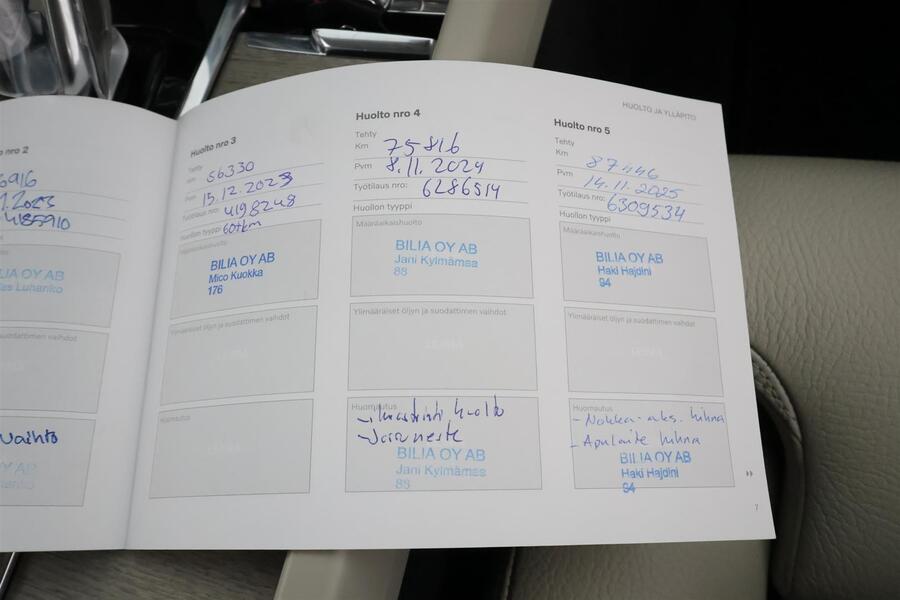 HUOLTO JA YLLÄPITO
o nro 2
6916
1.2023
4185910
ILIA OY AB
as Luhanko
uodattimen vaihdot
vaihto
Huolto nro 3
Tehty
Km 56330
Pvm 15.12.2023
Työtilaus nro: 4198248
Huollon tyyppi 60tkm
Määräaikaishuolto
BILIA OY AB
Mico Kuokka
176
Ylimääräiset öljyn ja suodattimen vaihdot
LEIMA
Huomautus
Huolto nro 4
Tehty
Km 75816
Pvm 8.11.2024
Työtilaus nro: 6286514
Huollon tyyppi
Määräaikaishuolto
BILIA OY AB
Jani Kylmämaa
88
Ylimääräiset öljyn ja suodattimen vaihdot
LEIMA
Huomautus
huolto
- Jarruneste
BILIA OY AB
Jani Kylmämaa
88
Huolto nro 5
Tehty
Km 87446
Pvm 14.11.2025
Työtilaus nro: 6309534
Huollon tyyppi
Määräaikaishuolto
BILIA OY AB
Haki Hajdini
94
Ylimääräiset öljyn ja suodattimen vaihdot
LEIMA
Huomautus
- Nokka-aks. hihna
- Apulaite hihna
BILIA OY AB
Haki Hajdini
94
7